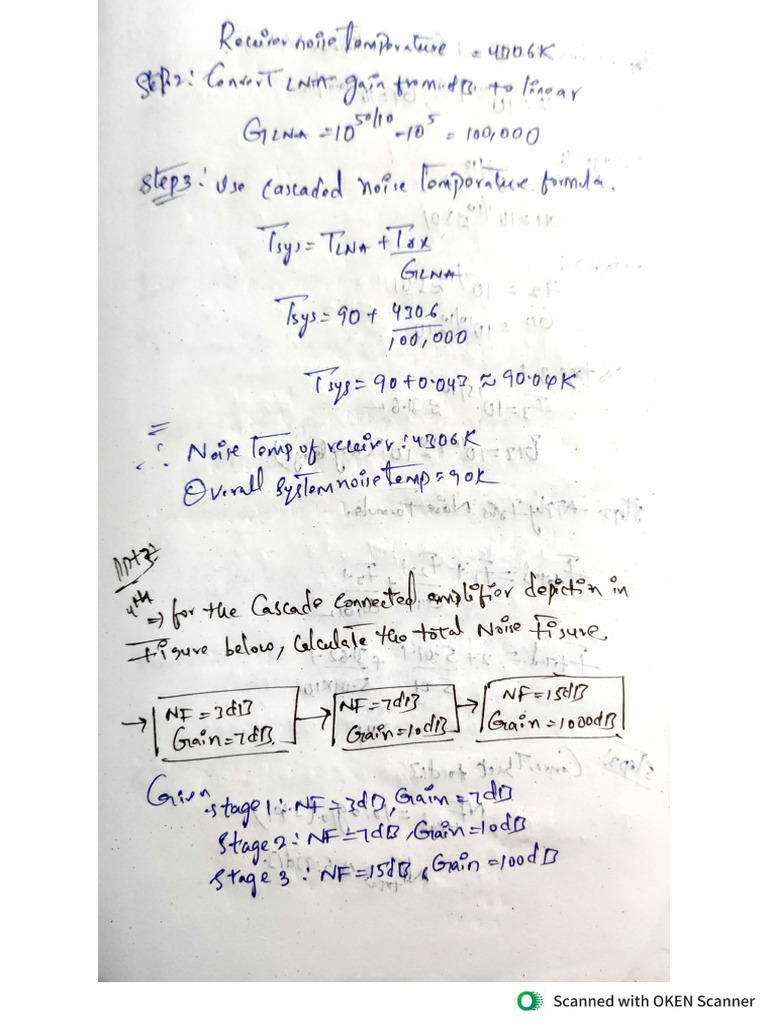 Receiver noise Temperature = 4306K
Step2: Convert LNA gain from dB to linear
GLNA = 10^50/10 = 10^5 = 100,000
Step3: Use Cascaded noise Temperature formula.
Tsys = TLNA + Trx / GLNA
Tsys = 90 + 4306 / 100,000
Tsys = 90 + 0.043 ≈ 90.04K
∴ Noise Temp of receiver: 4306K
Overall system noise temp = 90K
4th ⇒ for the Cascade Connected amplifier depiction in
Figure below, Calculate the total Noise figure.
NF = 3dB
Gain = 7dB.
NF = 7dB
Gain = 10dB
NF = 15dB
Gain = 1000dB
Given
Stage 1: NF = 3dB, Gain = 7dB
Stage 2: NF = 7dB, Gain = 10dB
Stage 3: NF = 15dB, Gain = 100dB
Scanned with OKEN Scanner